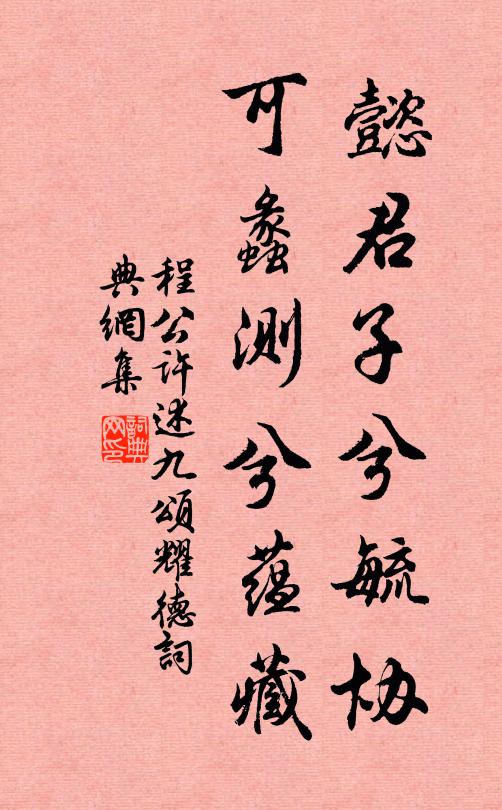 懿君子兮毓协
可蠡测兮蕴藏
程公许述九頌耀德詞
典網集
詞典
网印